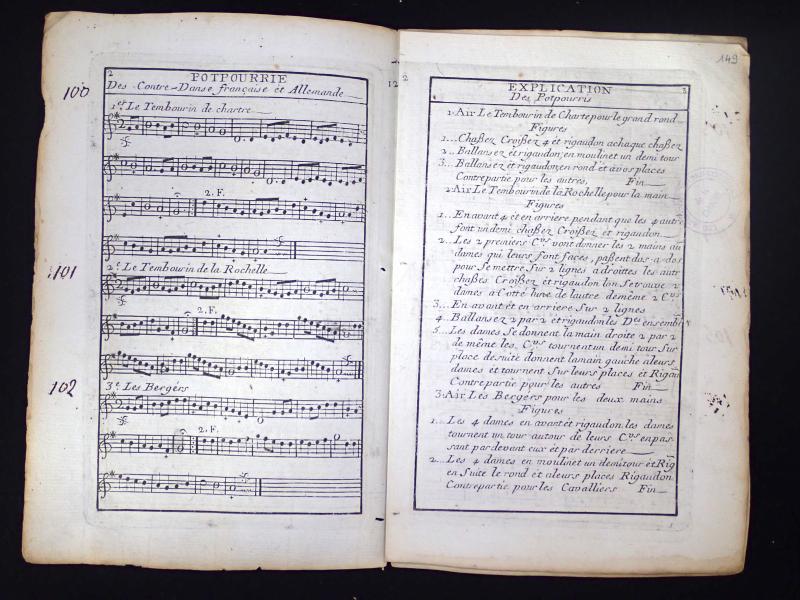 100
2
POTPOURRIE
Des Contre-Danse française et Allemande
1er Le Tembourin de chartre
2. F.
101
2e Le Tembourin de la Rochelle
2. F.
102
3e Les Bergérs
2. F.
149
2
12
EXPLICATION
3
Des Potpourris
1 Air Le Tembourin de Charte pour le grand rond
Figures
1... Chaßez Croißez 4 et rigaudon a chaque chaßez
2... Ballansez et rigaudon, en moulinet un demi tour
3... Ballansez et rigaudon, en rond et a vos places
Contrepartie pour les autres, Fin
2 Air Le Tembourin de la Rochelle pour la main
Figures
1... En avant 4 et en arriere pendant que les 4 autr
font un demi chaßez Croißez et rigaudon
2... Les 2 premiers Cus vont donner les 2 mains au
dames qui leurs sont faces, paßent dos-a-dos
pour Se mettre Sur 2 lignes a droittes les autr
chaßés Croißez et rigaudon lon Se trouve 2
dames a Cotté lune de lautre de même 2 Cus
3... En avant et en arriere Sur 2 lignes
4. Ballansez 2 par 2 et rigaudon les Des ensembl
5... Les dames Se donnent la main droite 2 par 2
de même les Cus tournent un demi tour Sur
place de suite donnent la main gauche a leurs
dames et tournent Sur leurs places et Rigau
Contrepartie pour les autres Fin
3 Air Les Bergers pour les deux mains
Figures
1... Les 4 dames en avant et rigaudon les dames
tournent un tour autour de leurs Cus en pas-
sant par devant eux et par derriere
2... Les 4 dames en moulinet un demi tour et Rig
en Suite le rond et a leurs places Rigaudon
Contrepartie pour les Cavalliers Fin